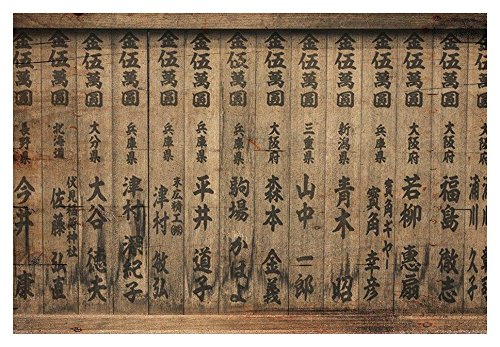 金伍萬圓
金伍萬圓 大阪府 福島 徹志
金伍萬圓 大阪府 若柳 惠扇
金伍萬圓 兵庫県 幸彦
金伍萬圓 新潟県 青木 昭
金伍萬圓 三重県 山中 一郎
金伍萬圓 大阪府 森本 金義
金伍萬圓 兵庫県 駒場 かほよ
金伍萬圓 兵庫県 平井 道子
金伍萬圓 兵庫県 末広精工㈱ 津村 敏弘
金伍萬圓 兵庫県 津村 紀子
金伍萬圓 大分県 大谷 徳夫
金伍萬圓 北海道 伏見稲荷神社 佐藤 弘直
金伍萬圓 長野県 今井 康